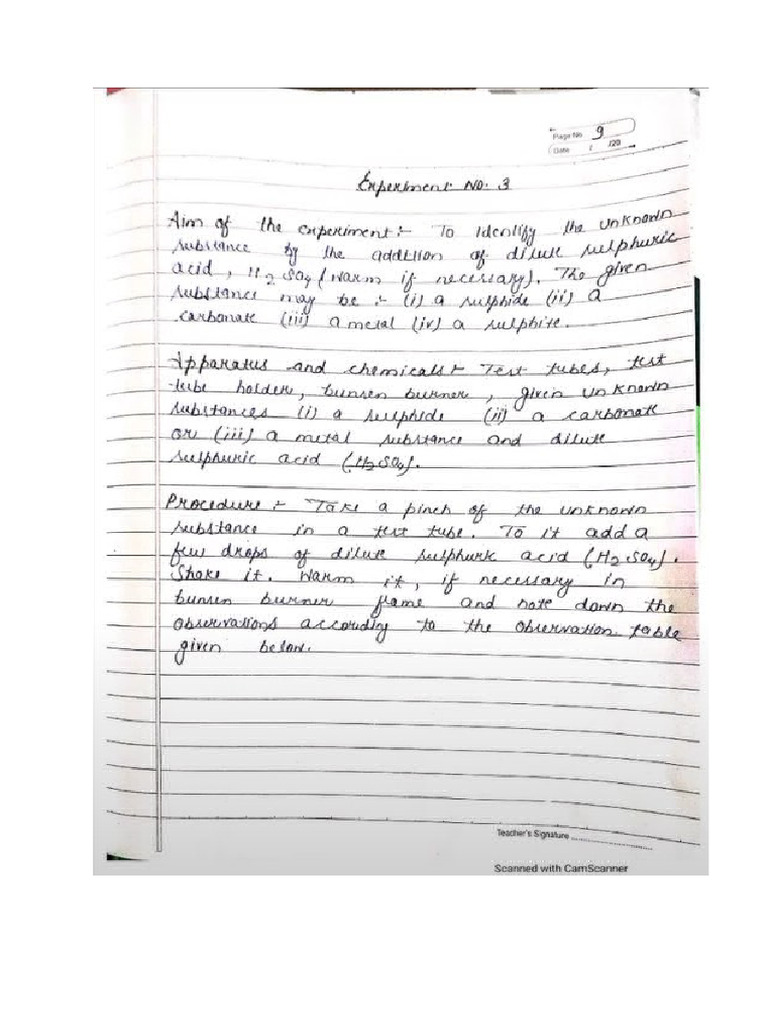 Page No. 9
Date / /20
Experiment No. 3
Aim of the experiment :- To identify the unknown
substance by the addition of dilute sulphuric
acid, H2SO4 (warm if necessary). The given
substance may be :- (i) a sulphide (ii) a
carbonate (iii) a metal (iv) a sulphite.
Apparatus and chemicals :- Test tubes, test
tube holder, bunsen burner, given unknown
substances (i) a sulphide (ii) a carbonate
or (iii) a metal substance and dilute
sulphuric acid (H2SO4).
Procedure :- Take a pinch of the unknown
substance in a test tube. To it add a
few drops of dilute sulphuric acid (H2SO4).
Shake it. Warm it, if necessary in
bunsen burner flame and note down the
observations according to the observation table
given below.
Teacher's Signature ........................
Scanned with CamScanner